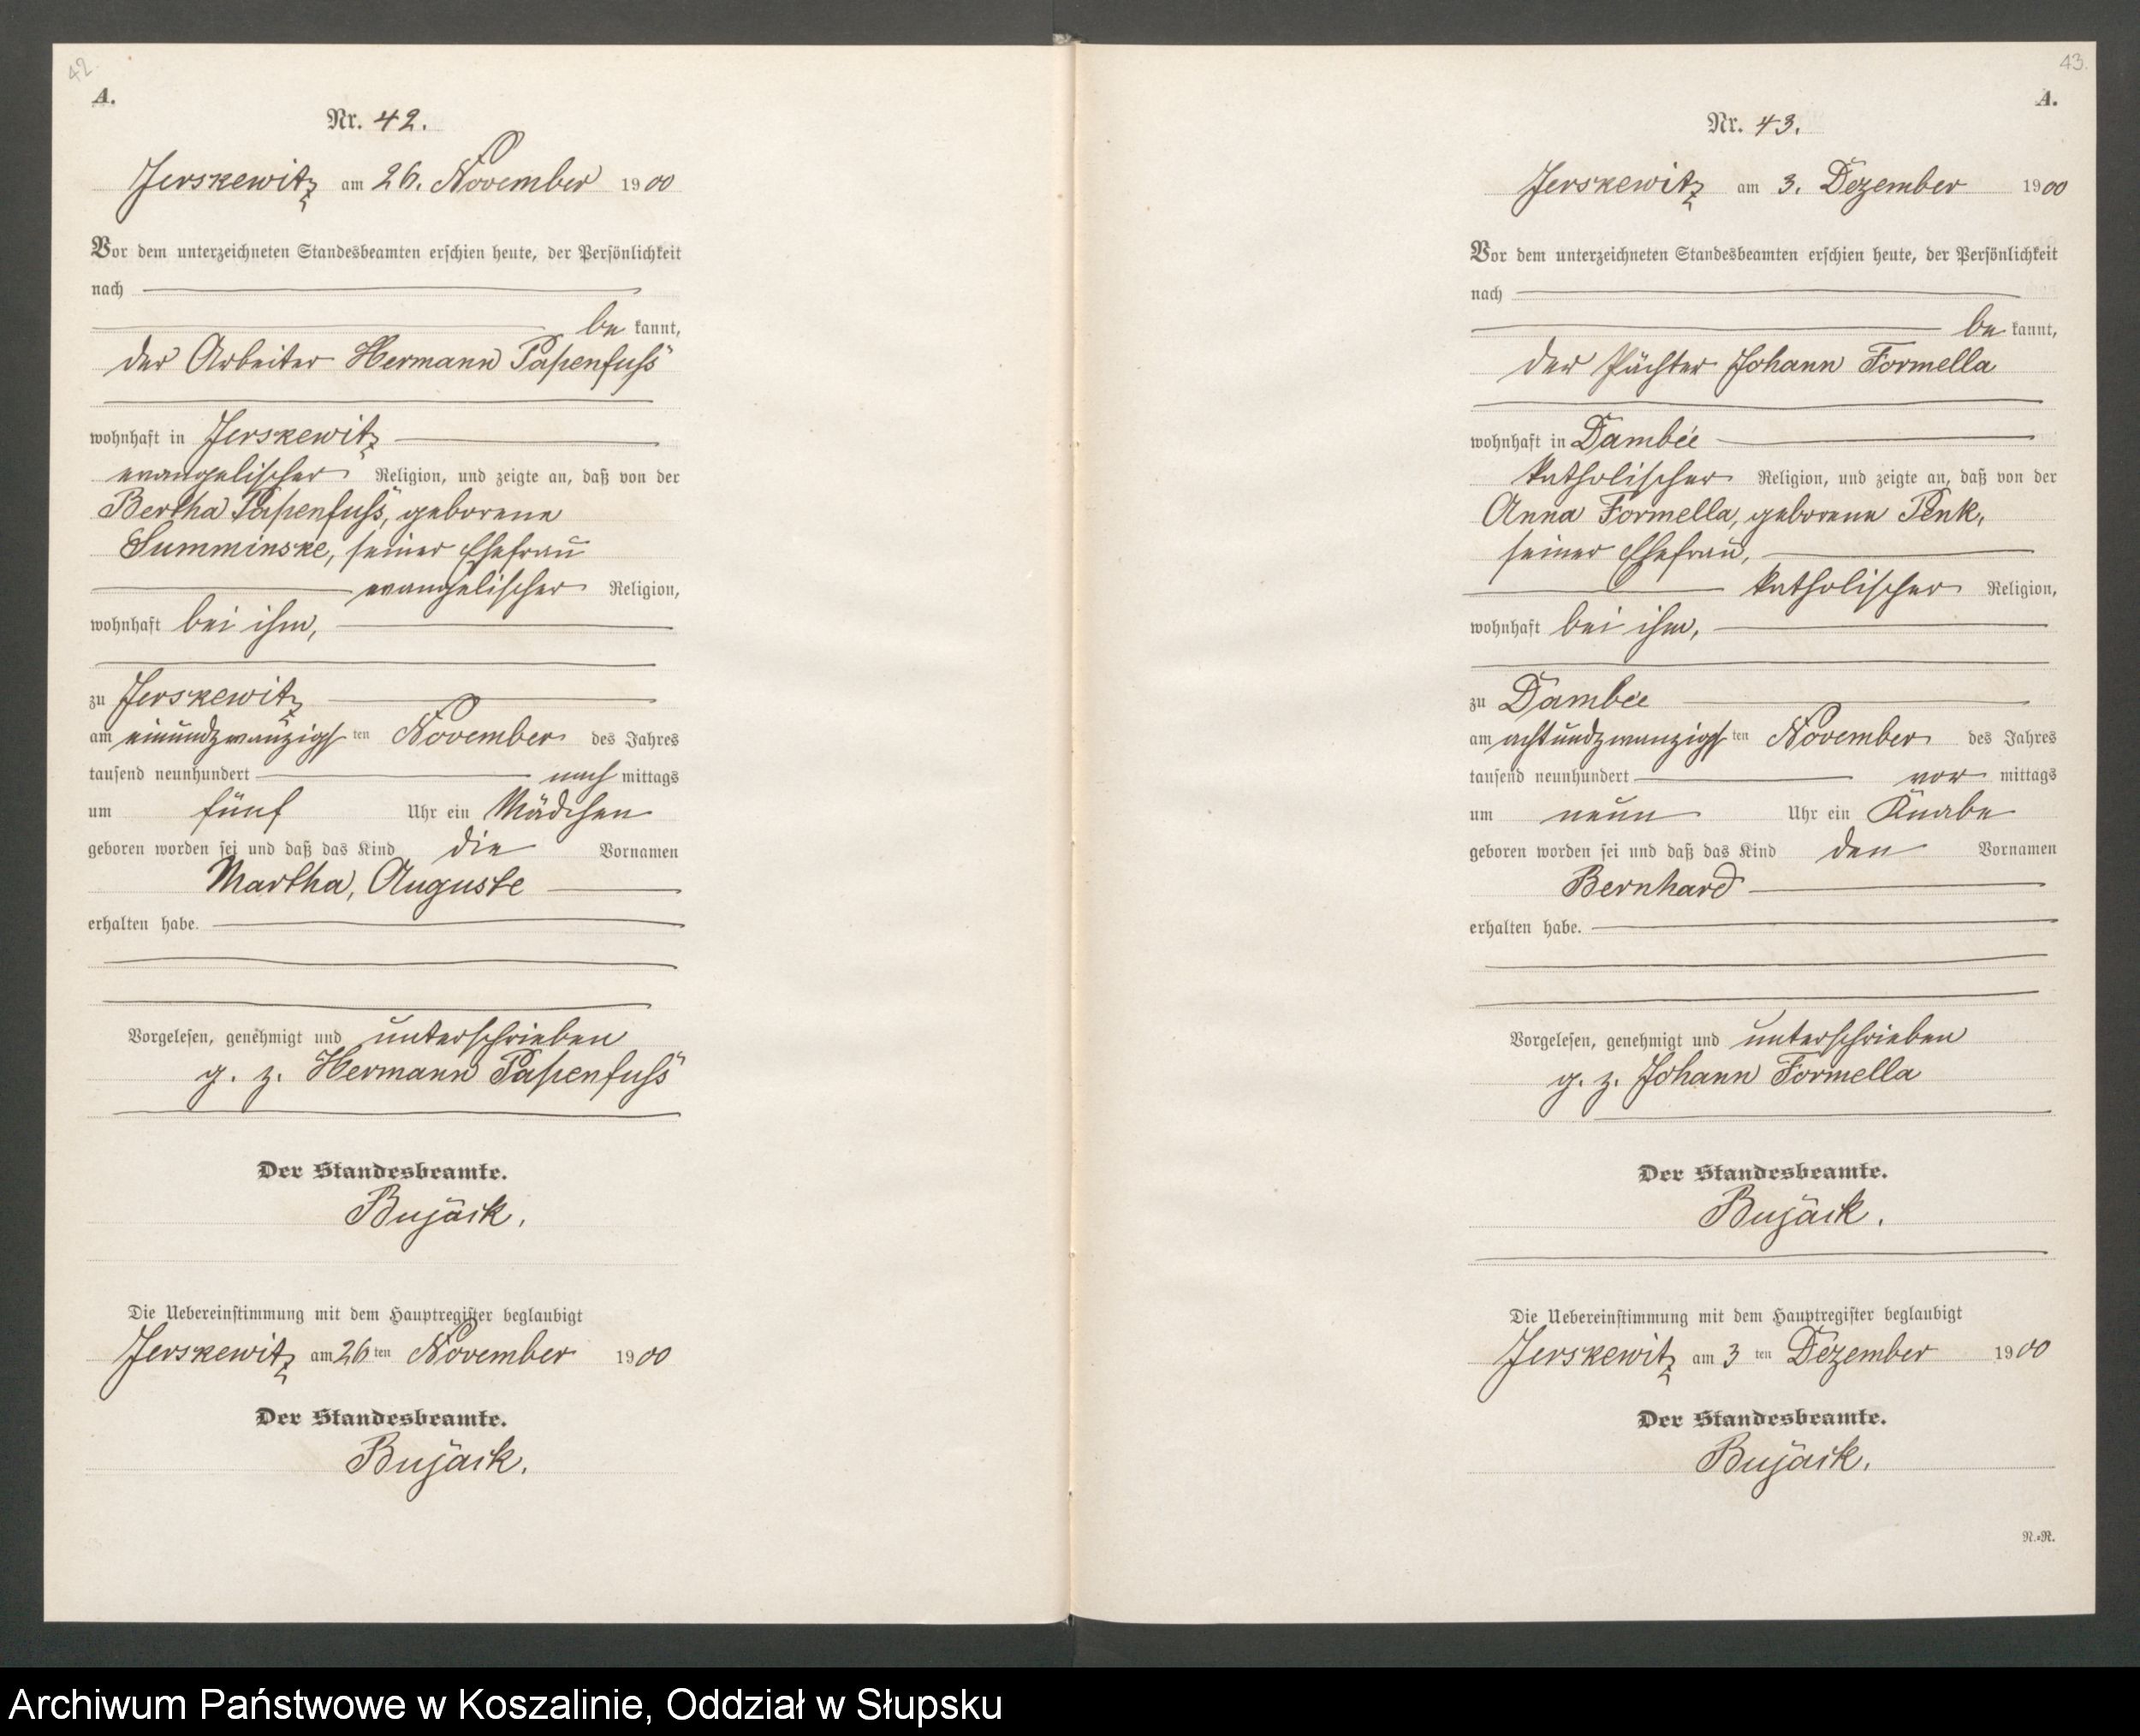 42.
A.
Nr. 42.
Jerskewitz am 26. November 1900
Vor dem unterzeichneten Standesbeamten erschien heute, der Persönlichkeit
nach
be kannt,
der Arbeiter Hermann Papenfuß
wohnhaft in Jerskewitz
evangelischer Religion, und zeigte an, daß von der
Bertha Papenfuß, geborene
Summinske, seiner Ehefrau
evangelischer Religion,
wohnhaft bei ihm,
zu Jerskewitz
am einundzwanzigsten November des Jahres
tausend neunhundert nach mittags
um fünf Uhr ein Mädchen
geboren worden sei und daß das Kind die Vornamen
Martha, Auguste
erhalten habe.
Vorgelesen, genehmigt und unterschrieben
g. z. Hermann Papenfuß
Der Standesbeamte.
Bujack.
Die Uebereinstimmung mit dem Hauptregister beglaubigt
Jerskewitz am 26ten November 1900
Der Standesbeamte.
Bujack.
43.
A.
Nr. 43.
Jerskewitz am 3. Dezember 1900
Vor dem unterzeichneten Standesbeamten erschien heute, der Persönlichkeit
nach
be kannt,
der Pächter Johann Formella
wohnhaft in Dambee
katholischer Religion, und zeigte an, daß von der
Anna Formella, geborene Penk,
seiner Ehefrau,
katholischer Religion,
wohnhaft bei ihm,
zu Dambee
am achtundzwanzigsten November des Jahres
tausend neunhundert vor mittags
um neun Uhr ein Knabe
geboren worden sei und daß das Kind den Vornamen
Bernhard
erhalten habe.
Vorgelesen, genehmigt und unterschrieben
g. z. Johann Formella
Der Standesbeamte.
Bujack.
Die Uebereinstimmung mit dem Hauptregister beglaubigt
Jerskewitz am 3 ten Dezember 1900
Der Standesbeamte.
Bujack.
N.-R.
Archiwum Państwowe w Koszalinie, Oddział w Słupsku